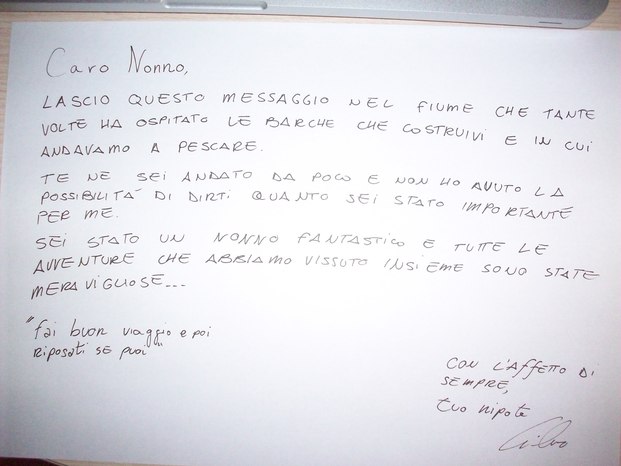 Caro Nonno,
LASCIO QUESTO MESSAGGIO NEL FIUME CHE TANTE
VOLTE HA OSPITATO LE BARCHE CHE COSTRUIVI E IN CUI
ANDAVAMO A PESCARE.
TE NE SEI ANDATO DA POCO E NON HO AVUTO LA
POSSIBILITA' DI DIRTI QUANTO SEI STATO IMPORTANTE
PER ME.
SEI STATO UN NONNO FANTASTICO E TUTTE LE
AVVENTURE CHE ABBIAMO VISSUTO INSIEME SONO STATE
MERAVIGLIOSE...
"fai buon viaggio e poi
RIPOSATI SE PUOI"
CON L'AFFETTO DI
SEMPRE,
tuo nipote